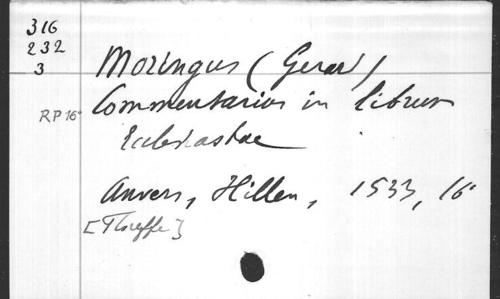 316
232
3
Moringus (Gerar)
RP 16° Commentarios in librum
Ecclesiastae
Anvers, Hillen, 1533, 16°
[Floreffe]